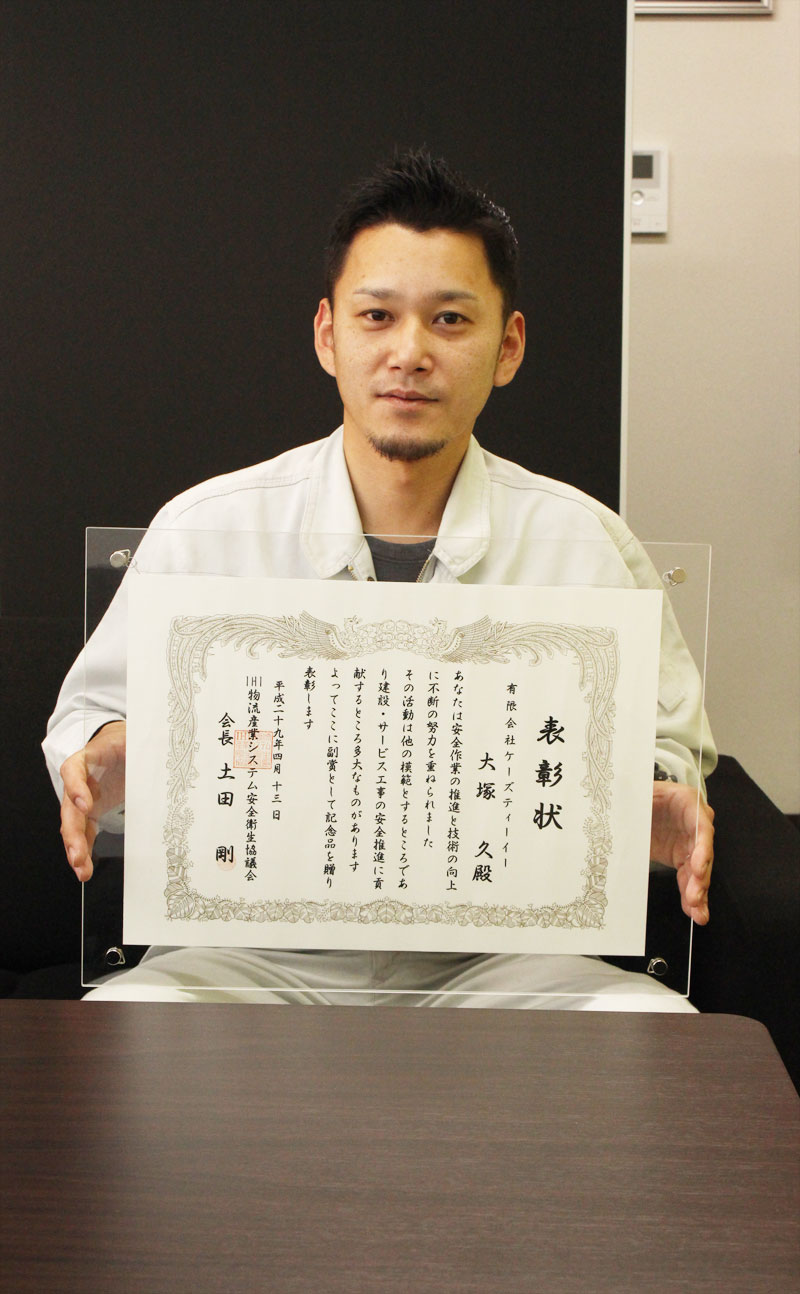 表彰状
有限会社ケーズティーイー
大塚 久殿
あなたは安全作業の推進と技術の向上
に不断の努力を重ねられました
その活動は他の模範とするところであ
り建設・サービス工事の安全推進に貢
献するところ多大なものがあります
よってここに副賞として記念品を贈り
表彰します
平成二十九年四月十三日
IHI物流産業システム安全衛生協議会
会長 土田 剛